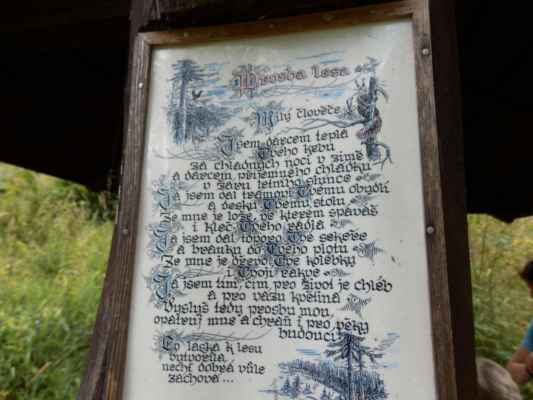 Prosba lesa
Milý člověče
Jsem dárcem tepla
Tvého krbu
za chladných nocí v zimě
a dárcem příjemného chládku
v žáru letního slunce
Já jsem dal trámoví Tvému obydlí
a desku Tvému stolu
Ze mne je lože, ve kterém spáváš
i kleč Tvého rádla
Já jsem dal toporo Tvé sekeře
a branku do Tvého plotu
Ze mne je dřevo Tvé kolébky
i Tvojí rakve
Já jsem tím, čím pro život je chléb
a pro vázu květina
Vyslyš tedy prosbu mou,
opatruj mne a chraň i pro věky
budoucí
Co láska k lesu
vytvořila,
nechť dobrá vůle
zachová ...